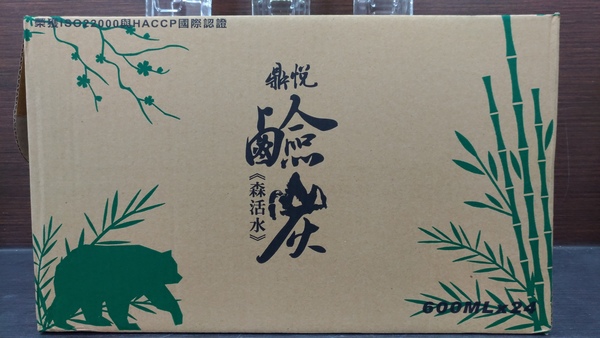 榮獲ISO22000與HACCP國際認證
鼎悅
鹼炭
《森活水》
600MLx24